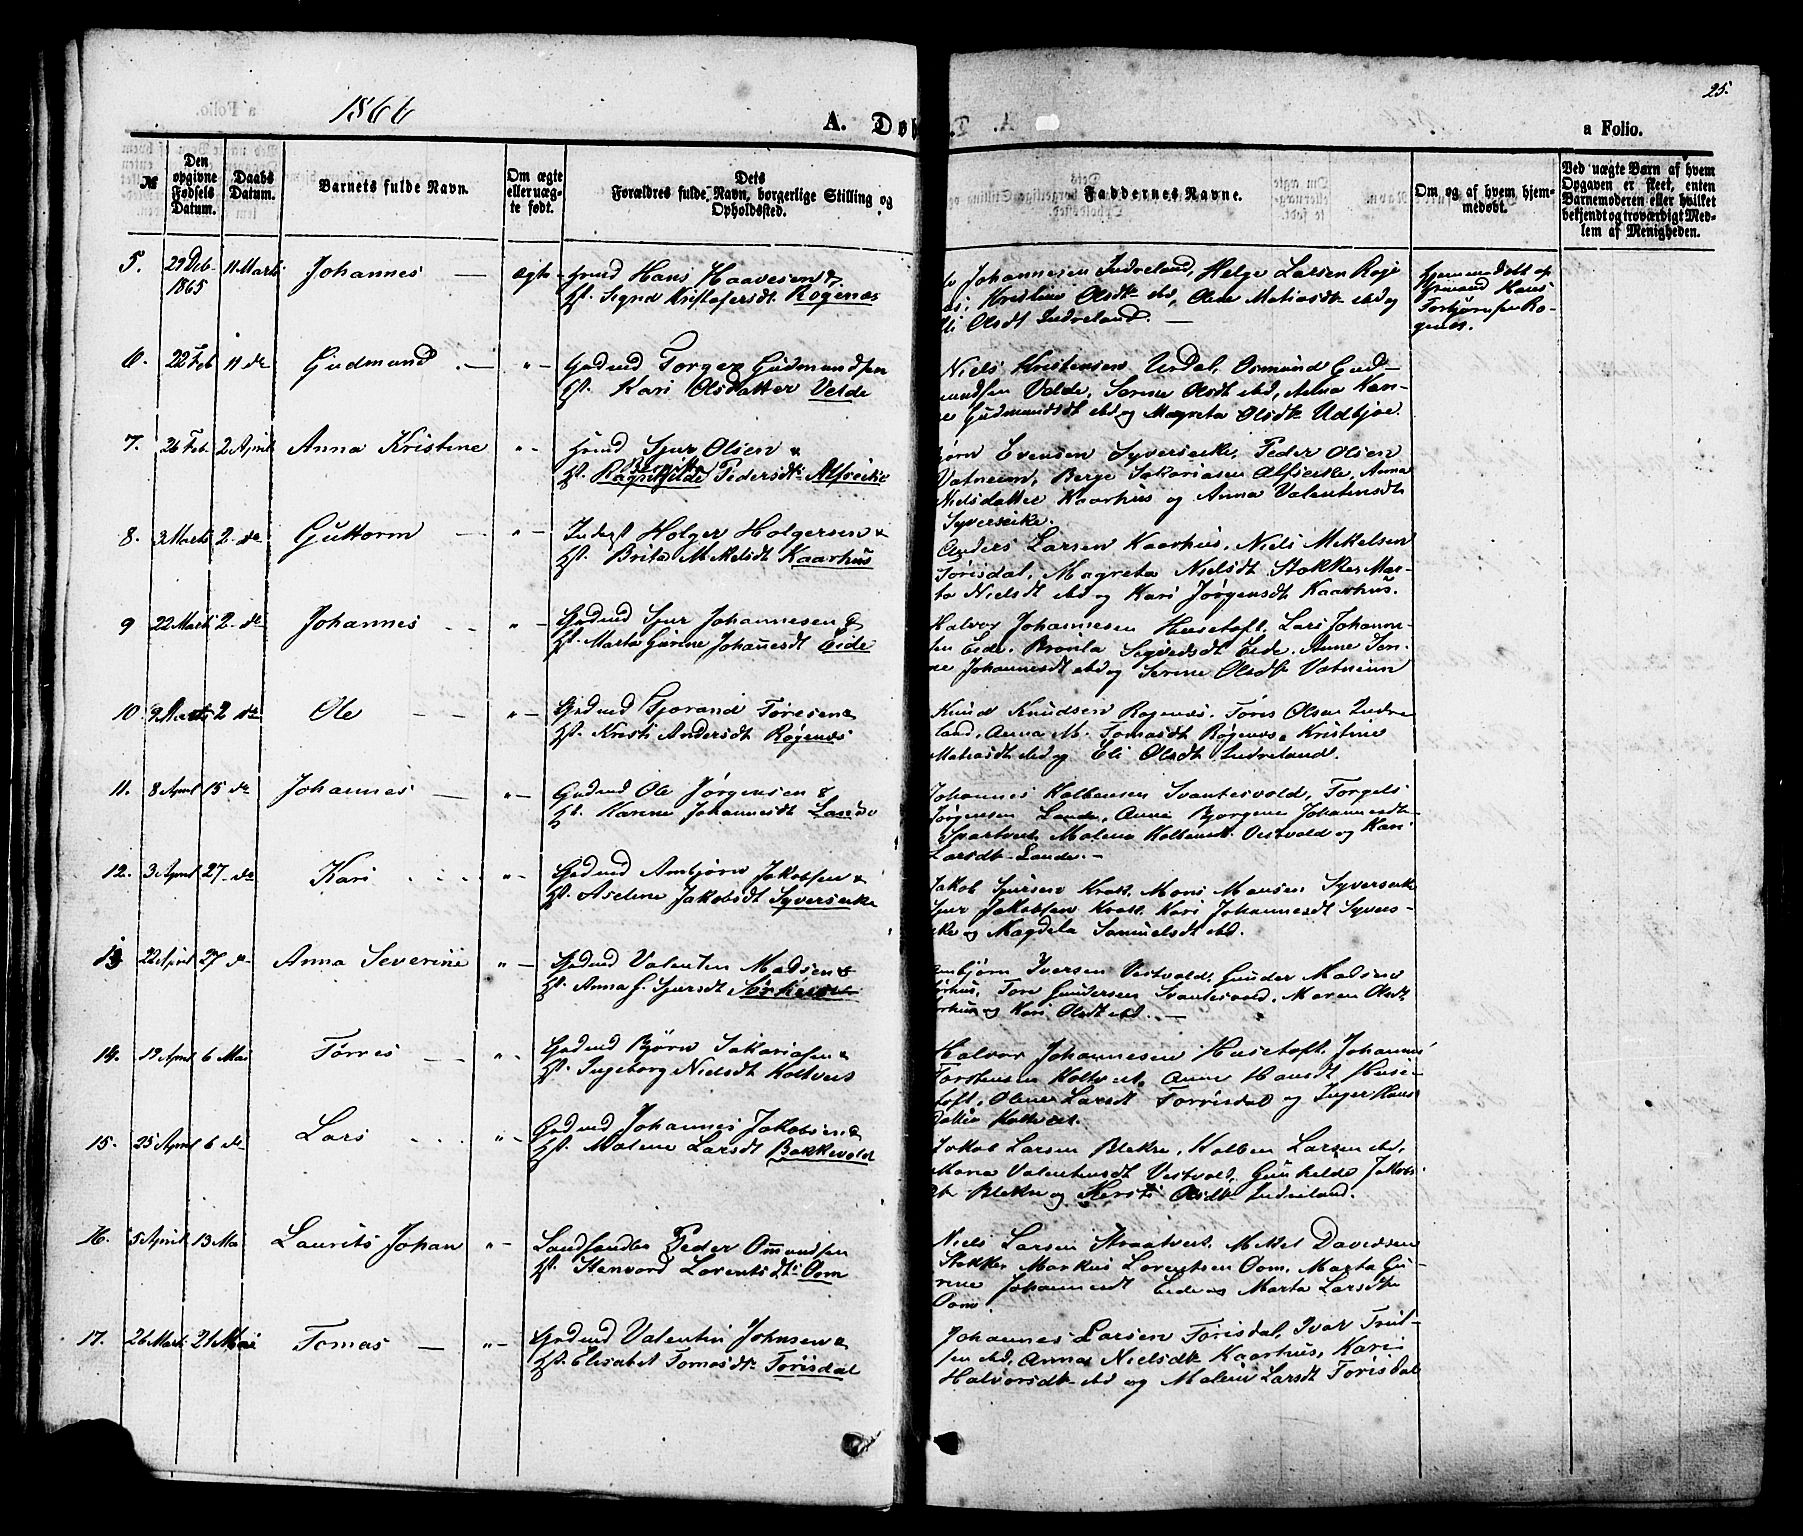 1866
A. Døb
a Folio.
25.
№
Den opgivne Fødsels Datum.
Daabs Datum.
Barnets fulde Navn.
Om ægte eller uægte født.
Dets Forældres fulde Navn, borgerlige Stilling og Opholdssted.
Faddernes Navne.
Om og af hvem hjemmedøbt.
Ved uægte Barn af hvem Opgaven er skeet, enten Barnemoderen eller hvilket bekjendt og troværdigt Medlem af Menigheden.
5. 29 Deb 1865 11 Marts Johannes — ægte
Hans Haavesen &
Signa Kristofersdt Røgenæs
Johannesen Indreland, Helge Larsen Røge
Kristine Olsdt ibd, Oline Matiasdt ibd og
Eli Olsdt Indreland. —
Hjemmedøbt af
Gjmand Hans
Torbjørnsen Rø-
genæs.
6. 22 Feb 11 do Gudmund — "—
Gdmd Torger Gudmundsen
Hst. Kari Olsdatter Velde
Niels Kristensen Urdal, Osmund Gud-
mundsen Velde, Serine Olsdt ibd, Anna Kar-
ine Gudmundsdt ibd og Magreta Olsdt Udbjoe.
7. 26 Feb. 2 April Anna Kristine "—
Sjur Olsen &
Hst. Ragnhilde Pedersdt Alfseike
Bjørn Evensen Syverseike, Peder Olsen
Vatneim, Berge Sakariasen Alfseike, Anna
Nielsdatter Kaarhus og Anna Valentinsdt
Syverseike.
8. 3 Marts 2 do Guttorm — "—
Holger Holgersen &
Hst. Brita Mikelsdt Kaarhus
Anders Larsen Kaarhus, Niels Mikelsen
Torisdal, Magreta Nielsdt Stokke, Mar-
ta Nielsdt ibd og Kari Jørgensdt Kaarhus.
9 22 Marts 2 do Johannes — "—
Gdmd Sjur Johannesen &
Hst. Marta Gurine Johannesdt Eide
Halvor Johannesen Husetoft, Lars Johanne-
sen Eide, Bronla Sivedsdt Eide, Anne Ser-
ine Johannesdt ibd og Serine Olsdt Vatneim
10. 9 Marts 2 do Ole — "—
Gdmd Gjorand Tøresen &
Hst. Kristi Andersdt Røgenæs
Knud Knudsen Røgenæs, Tøris Olsen Indre
land, Anna M. Tomasdt Røgenæs, Kristine
Matiasdt ibd og Eli Olsdt Indreland.
11. 8 April 15 do Johannes — "—
Gdmd Ole Jørgensen &
Hst. Karine Johannesdt Lande
Johannes Kolbensen Svantesvold, Torgels
Jørgensen Lande, Anne Bjorgine Johannesdt
Spartveit, Malena Kolbensdt Vestvold og Kari
Larsdt Lande. —
12. 3 April 27 do Kari "—
Gdmd Ambjørn Jakobsen &
Hst. Aseline Jakobsdt Syverseike
Jakob Sjursen Krok, Mons Monsen Syverseike
Sjur Jakobsen Krok, Kari Johannesdt Syvers-
eike og Magdela Samuelsdt ibd.
13 22 April 27 do Anna Severine "—
Gdmd Valentin Madsen &
Hst. Anna G. Sjursdt
Ambjørn Iversen Vestvold, Gunder Madsen
Tore Gundersen Svantesvold, Maren Olsdt
og Kari Olsdt ibd. —
14. 19 April 6 Mai Tørres — "—
Gdmd Bjørn Sakariasen &
Hst. Ingeborg Nielsdt Koltveit
Halvor Johannesen Husetoft, Johannes
Torstensen Koltveit, Anne Hansdt Huse-
toft, Oline Larsdt Torrisdal og Inger Hans
datter Koltveit.
15. 25 April 6 do Lars "—
Gdmd Johannes Jakobsen &
Hst. Malene Larsdt Bakkevold
Jakob Larsen Blekre, Kolben Larsen ibd,
Maria Valentinsdt Vestvold, Gunhelde Jakobs
dt Blekre og Kersti Olsdt Indreland.
16. 5 April 13 Mai Laurits Johan "—
Landhandler Peder Ommundsen
Hst. Stenvord Lorentsdt Oom
Niels Larsen Straatveit, Mikel Davidsen
Stokke, Markus Lorentsen Oom, Marta Gu-
rine Johannesdt Eide og Marta Larsdt
Oom.
17. 26 Marts 21 Mai Tomas — "—
Gdmd Valentin Johnsen &
Hst. Elisabet Tomasdt Torisdal
Johannes Larsen Torisdal, Ivar Truls-
sen ibd, Anna Nielsdt Kaarhus, Kari
Halvorsdt ibd og Malene Larsdt Torisdal